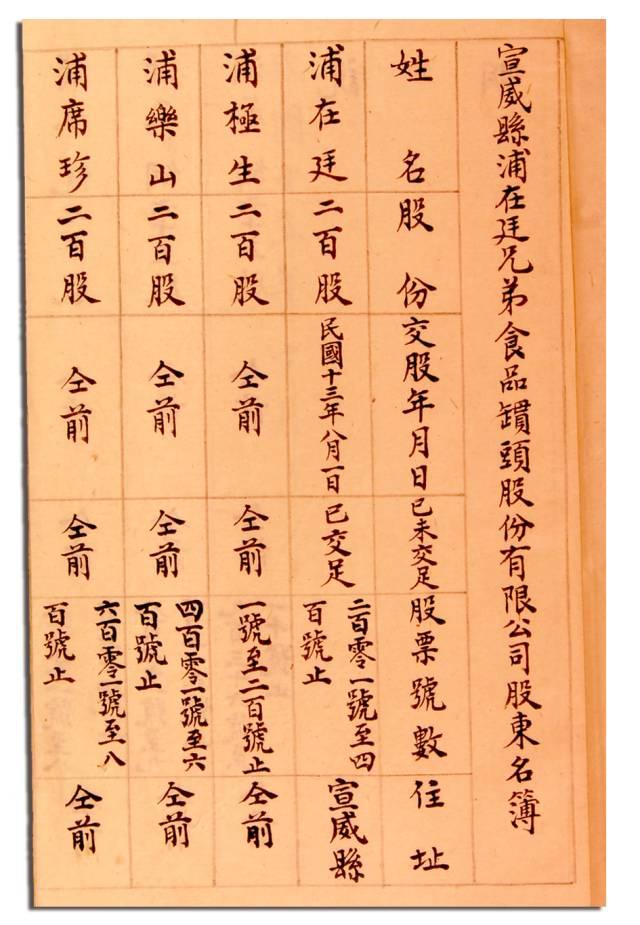 宣威縣浦在廷兄弟食品罐頭股份有限公司股東名簿
姓名 股份 交股年月日 已未交足 股票號數 住址
浦在廷 二百股 民國十三年八月一日 已交足 二百零一號至四百號止 宣威縣
浦極生 二百股 仝前 仝前 一號至二百號止 仝前
浦樂山 二百股 仝前 仝前 四百零一號至六百號止 仝前
浦席珍 二百股 仝前 仝前 六百零一號至八百號止 仝前